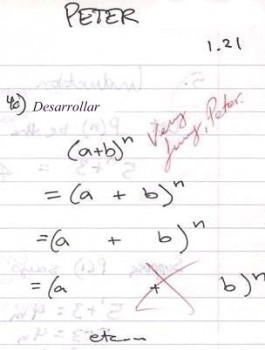 PETER
1.21
4c) Desarrollar
Very funny, Peter.
(a+b)ⁿ
= (a + b)ⁿ
= (a + b)ⁿ
= (a + b)ⁿ
etc...